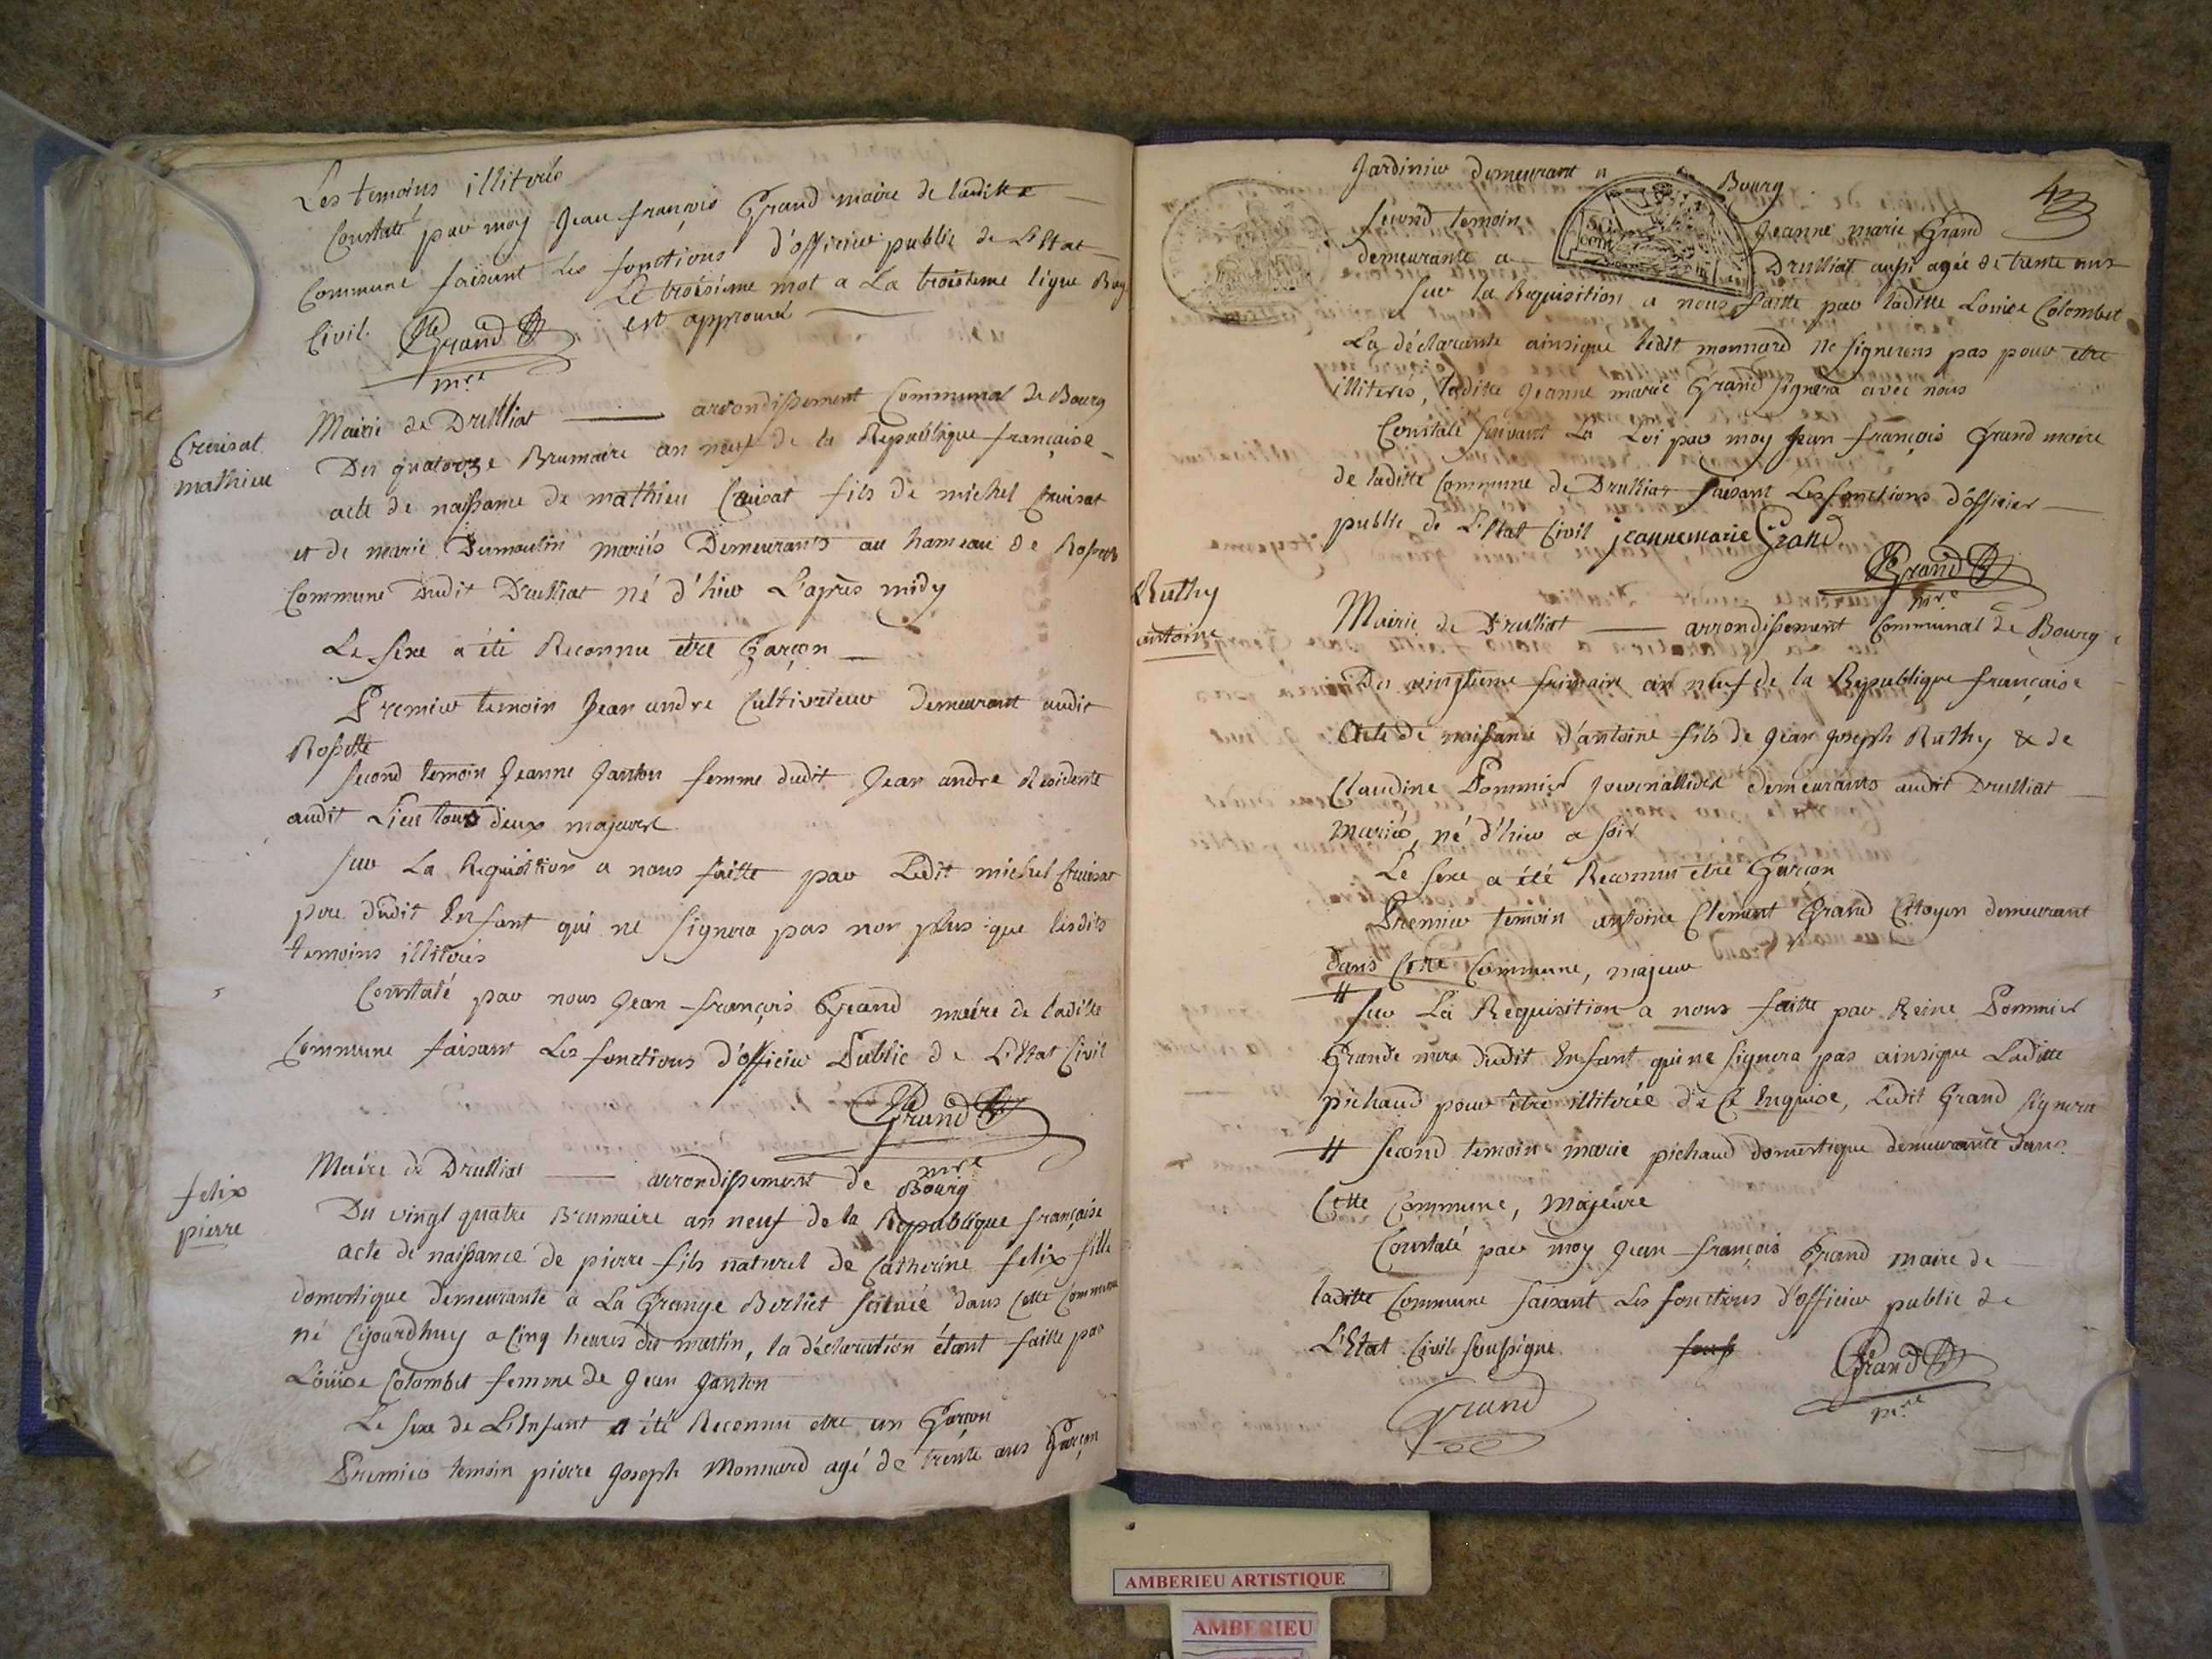 Les temoins illiterés
Constaté par moy Jean françois Grand maire de laditte
Commune faisant Les fonctions d'officier public de L'Etat
Civil. Grand Le troisième mot a La troisième ligne
est approuvé
mre
Creuisat
mathieu
Mairie de Druillat arrondissement Communal de Bourg
Du quatorze Brumaire an neuf de la Republique française
acte de naissance de mathieu Cruisat fils de michel Cruisat
et de marie Dumoulin mariés Demeurants au hameau de
Commune Dudit Druillat né d'hier L'après midy
Le sexe a été Reconnu etre Garçon
Premier temoin Jean andre Cultivateur Demeurant audit
Rossette
second temoin Jeanne Janton femme dudit Jean andre Residente
audit Lieu tous deux majeurs
sur La Requisition a nous faitte par Ledit michel Cruisat
pere dudit Enfant qui ne signera pas non plus que lesdits
temoins illiterés
Constaté par nous Jean-françois Grand maire de laditte
Commune faisant Les fonctions d'officier Public de L'Etat Civil
Grand
mre
felix
pierre
Mairie de Druillat arrondissement de Bourg
Du vingt quatre Brumaire an neuf de la Republique française
acte de naissance de pierre fils naturel de Catherine felix fille
domestique demeurante a La Grange Berliet scituée dans Cette Commune
né Cejourdhuy a Cinq heures du matin, la déclaration étant faitte par
Louise Colombet femme de Jean Janton
Le sexe de L'Enfant a été Reconnu etre un Garçon
Premier temoin pierre Joseph Monnard agé de trente ans Garçon
Jardinier demeurant a Bourg
second temoin Jeanne marie Grand
demeurante a Druillat aussi agée de trente ans
sur la Requisition a nous faitte par laditte Louise Colombet
La déclarante ainsique ledit monnard ne signerons pas pour etre
illiterés, laditte Jeanne marie Grand signera avec nous
Constaté suivant La Loi par moy Jean françois Grand maire
de laditte Commune de Druillat faisant Les fonctions d'officier
public de L'Etat Civil jeannemarie Grand
Grand
mre
Ruthy
antoine
Mairie de Druillat arrondissement Communal de Bourg
Du vingtieme frimaire an neuf de la Republique française
Acte de naissance d'antoine fils de Jean Joseph Ruthy & de
Claudine Pommier Journalliers demeurants audit Druillat
Mariés, né d'hier a soir
Le sexe a été Reconnu etre Garçon
Premier temoin antoine Clement Grand Citoyen demeurant
dans Cette Commune, majeur
#
sur La Requisition a nous faitte par Reine Pommier
Grande mere dudit Enfant qui ne signera pas ainsique Laditte
pichaud pour être illiterée de Ce Enquise, Ledit Grand signera
# second temoin marie pichaud domestique demeurante dans
Cette Commune, majeure
Constaté par moy Jean-françois Grand maire de
laditte Commune faisant Les fonctions d'officier public de
L'Etat Civil soussigné.
Grand
mre
Grand
AMBERIEU ARTISTIQUE
AMBERIEU